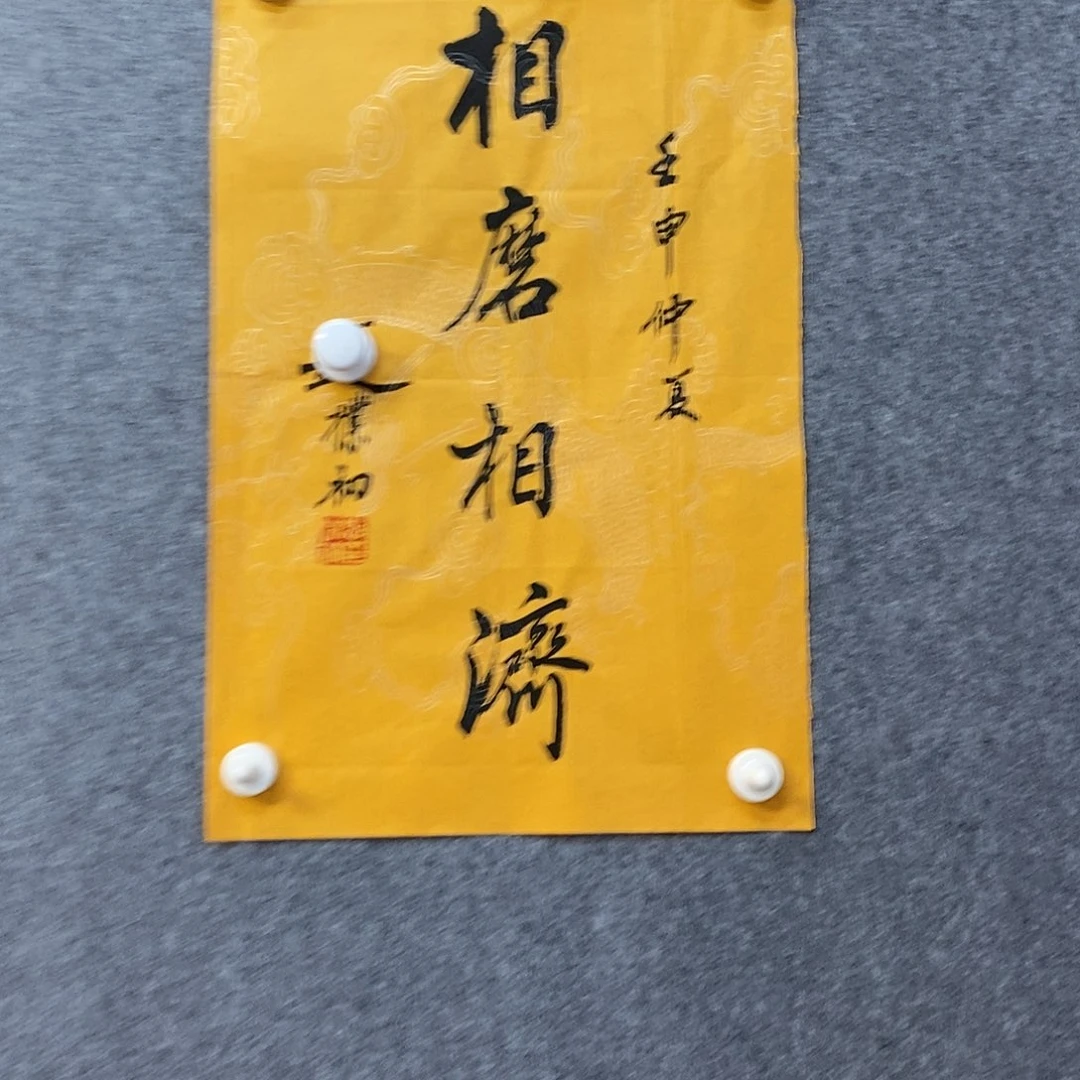 壬申仲夏
相磨相濟
樸初